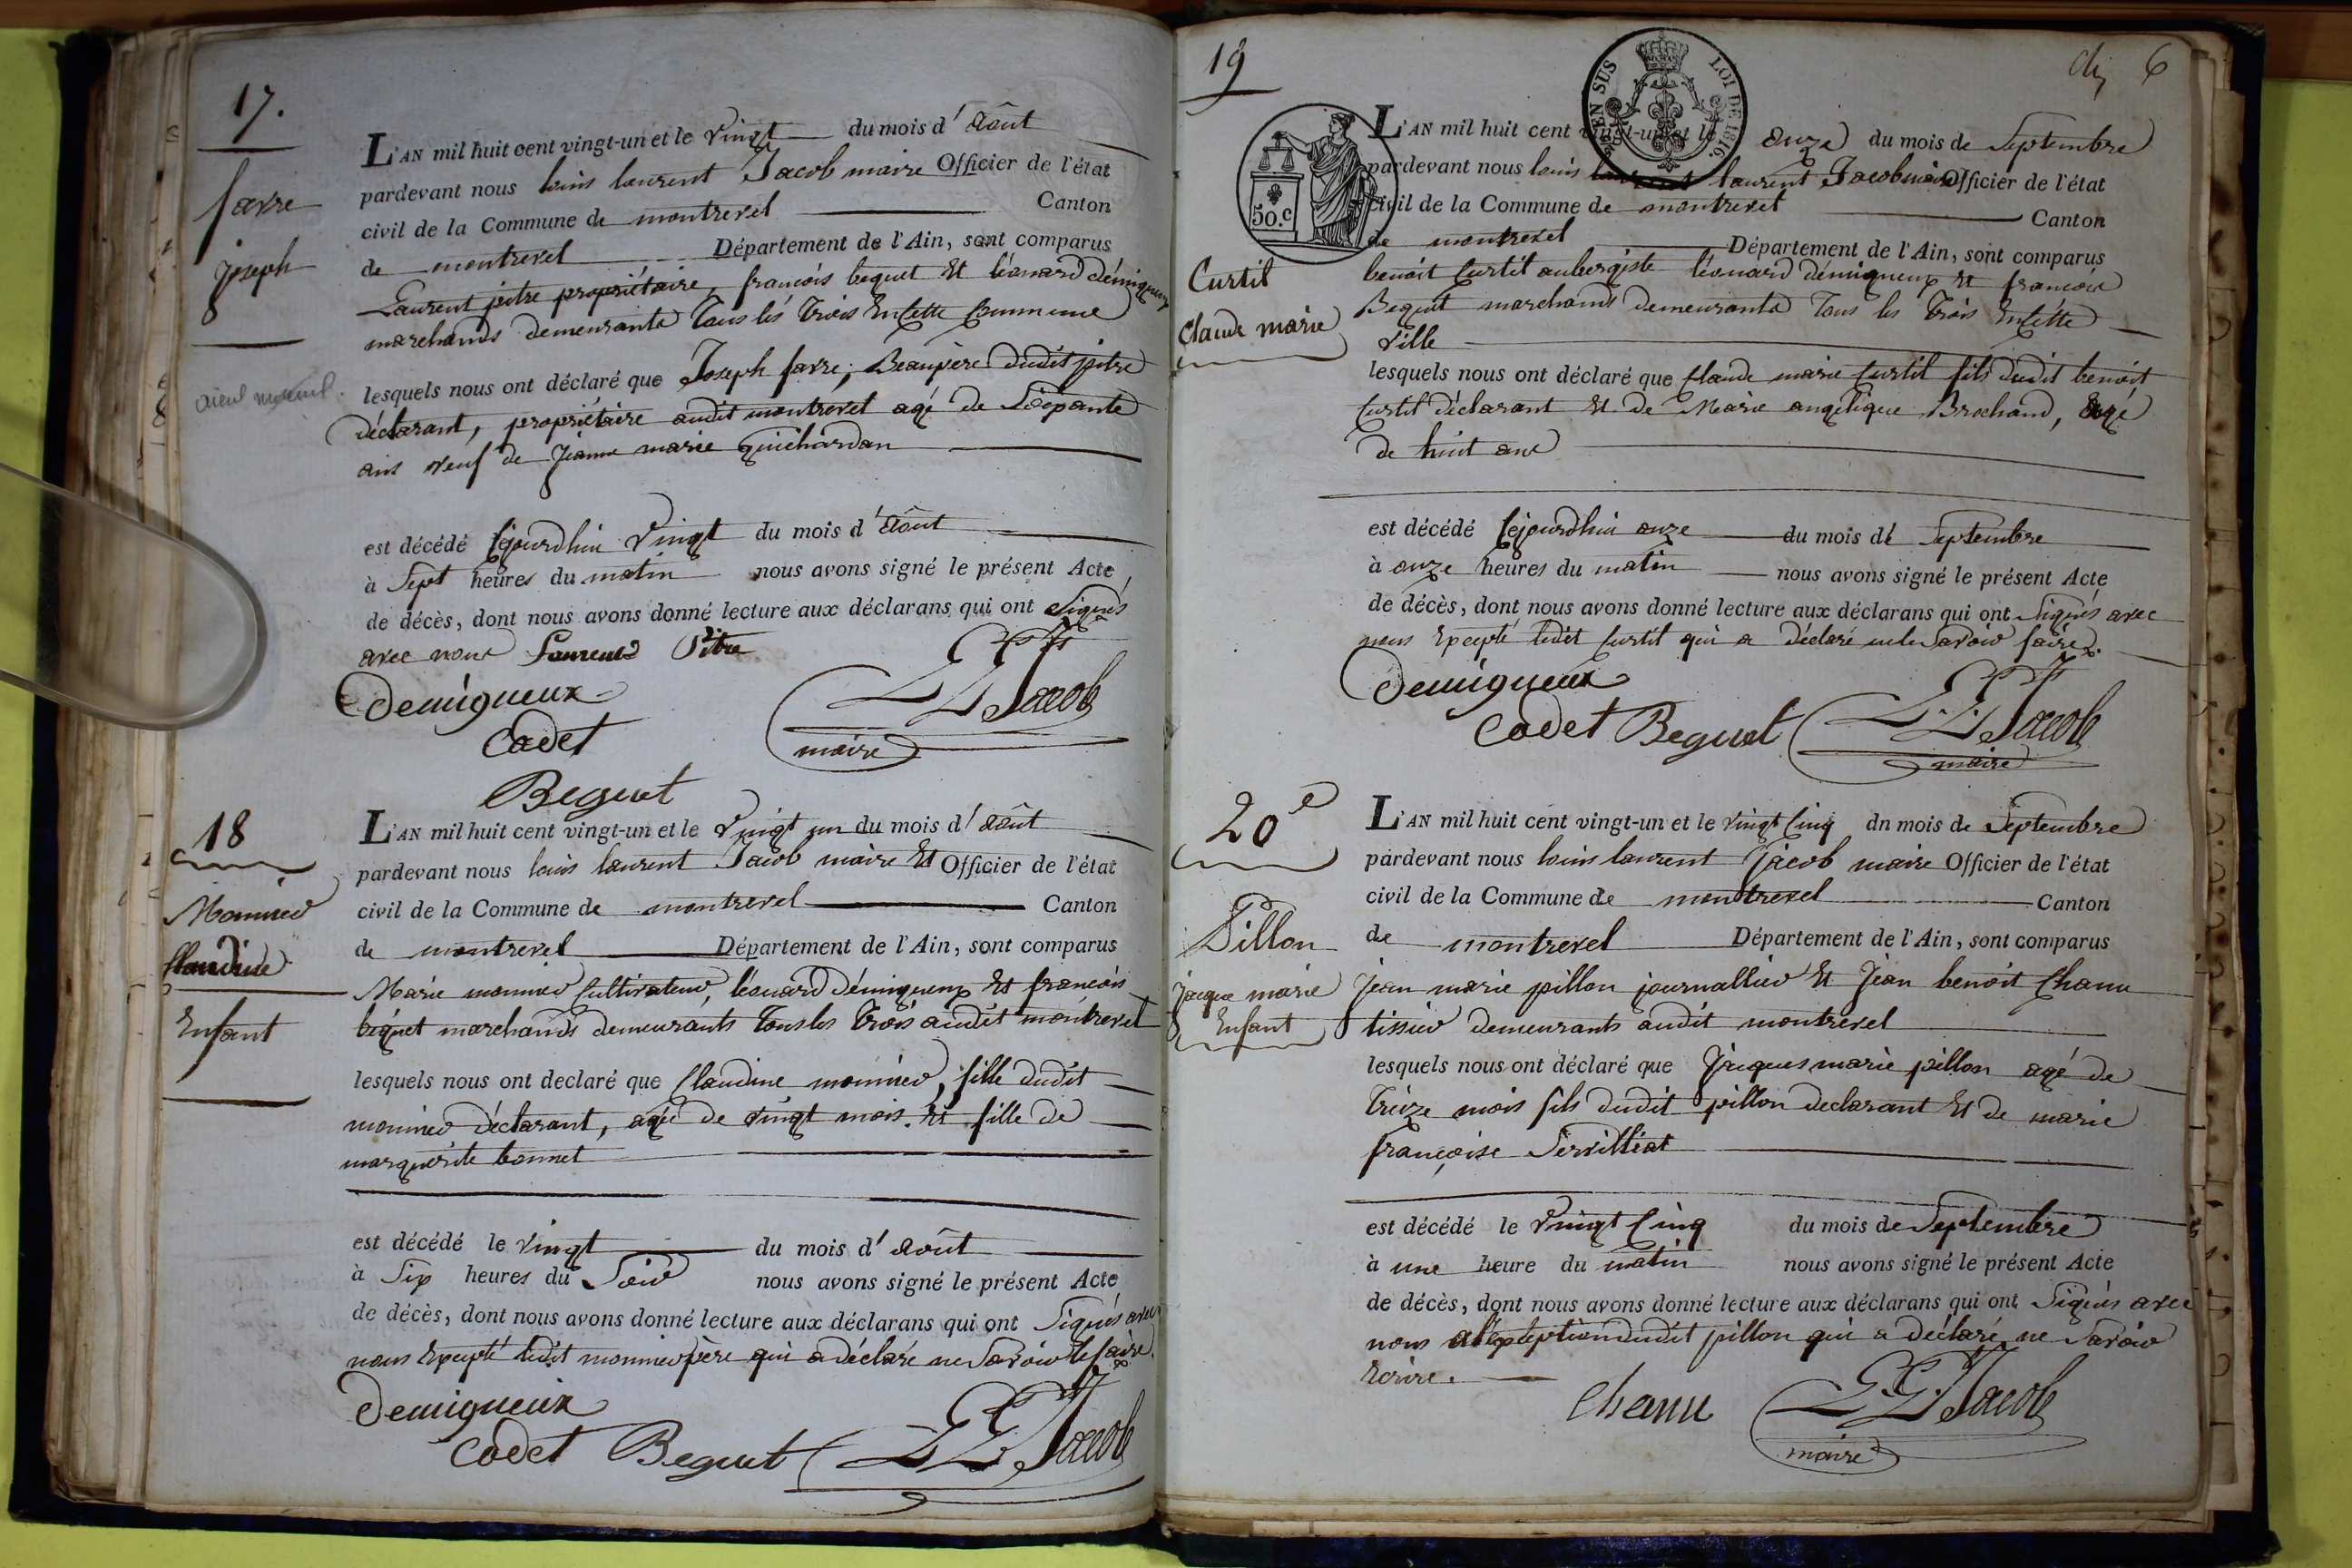 17.
favre
Joseph
L'AN mil huit cent vingt-un et le vingt du mois d'août
pardevant nous louis laurent Jacob maire Officier de l'état
civil de la Commune de montrevel Canton
de montrevel Département de l'Ain, sont comparus
Laurent pitre propriétaire, françois beguet Et léonard démigneux
marchands demeurants Tous les Trois En Cette Commune
aieul maternel.
lesquels nous ont déclaré que Joseph favre, Beaupère dudit pitre
déclarant, propriétaire audit montrevel agé de Soixante
ans veuf de Jeanne marie Guichardan
est décédé Cejourdhui vingt du mois d'août
à Sept heures du matin nous avons signé le présent Acte
de décès, dont nous avons donné lecture aux déclarans qui ont Signés
avec nous Laurend Pitre
Demigneux
Cadet
LL Jacob
maire
Beguet
18
Monnier
Claudine
Enfant
L'AN mil huit cent vingt-un et le vingt un du mois d'août
pardevant nous louis laurent Jacob maire Et Officier de l'état
civil de la Commune de montrevel Canton
de montrevel Département de l'Ain, sont comparus
Marie monnier Cultivateur, léonard démigneux Et françois
béguet marchands demeurants Tous les Trois audit montrevel
lesquels nous ont declaré que Claudine monnier, fille dudit
monnier déclarant, agée de vingt mois. Et fille de
marguerite bonnet
est décédé le vingt du mois d'août
à Six heures du Soir nous avons signé le présent Acte
de décès, dont nous avons donné lecture aux déclarans qui ont Signés avec
nous Excepté ledit monnier père qui a déclaré ne Savoir le faire.
Demigneux
Cadet Beguet LL Jacob
19
6
EN SUS
LOI DE 1816
50.c
Curtil
Claude marie
L'AN mil huit cent vingt-un et le onze du mois de Septembre
pardevant nous louis laurent Jacob maire Officier de l'état
civil de la Commune de montrevel Canton
de montrevel Département de l'Ain, sont comparus
benoit Curtil aubergiste léonard démigneux Et françois
Beguet marchands demeurants Tous les Trois En Cette
ville
lesquels nous ont déclaré que Claude marie Curtil fils dudit benoit
Curtil déclarant Et de Marie angélique Brochand, agé
de huit ans
est décédé Cejourdhui onze du mois de Septembre
à onze heures du matin nous avons signé le présent Acte
de décès, dont nous avons donné lecture aux déclarans qui ont Signés avec
nous Excepté ledit Curtil qui a déclaré ne le Savoir faire.
Demigneux
Cadet Beguet LL Jacob
maire
20e
Pillon
Jacque marie
Enfant
L'AN mil huit cent vingt-un et le vingt Cinq dn mois de Septembre
pardevant nous louis laurent Jacob maire Officier de l'état
civil de la Commune de montrevel Canton
de montrevel Département de l'Ain, sont comparus
Jean marie pillon journallier Et Jean benoit Chanu
tissier demeurants audit montrevel
lesquels nous ont déclaré que Jacques marie pillon agé de
treize mois fils dudit pillon declarant Et de marie
françoise Servilliat
est décédé le vingt Cinq du mois de Septembre
à une heure du matin nous avons signé le présent Acte
de décès, dont nous avons donné lecture aux déclarans qui ont Signés avec
nous à l'exception dudit pillon qui a déclaré ne Savoir
Ecrire.
Chanu LL Jacob
maire